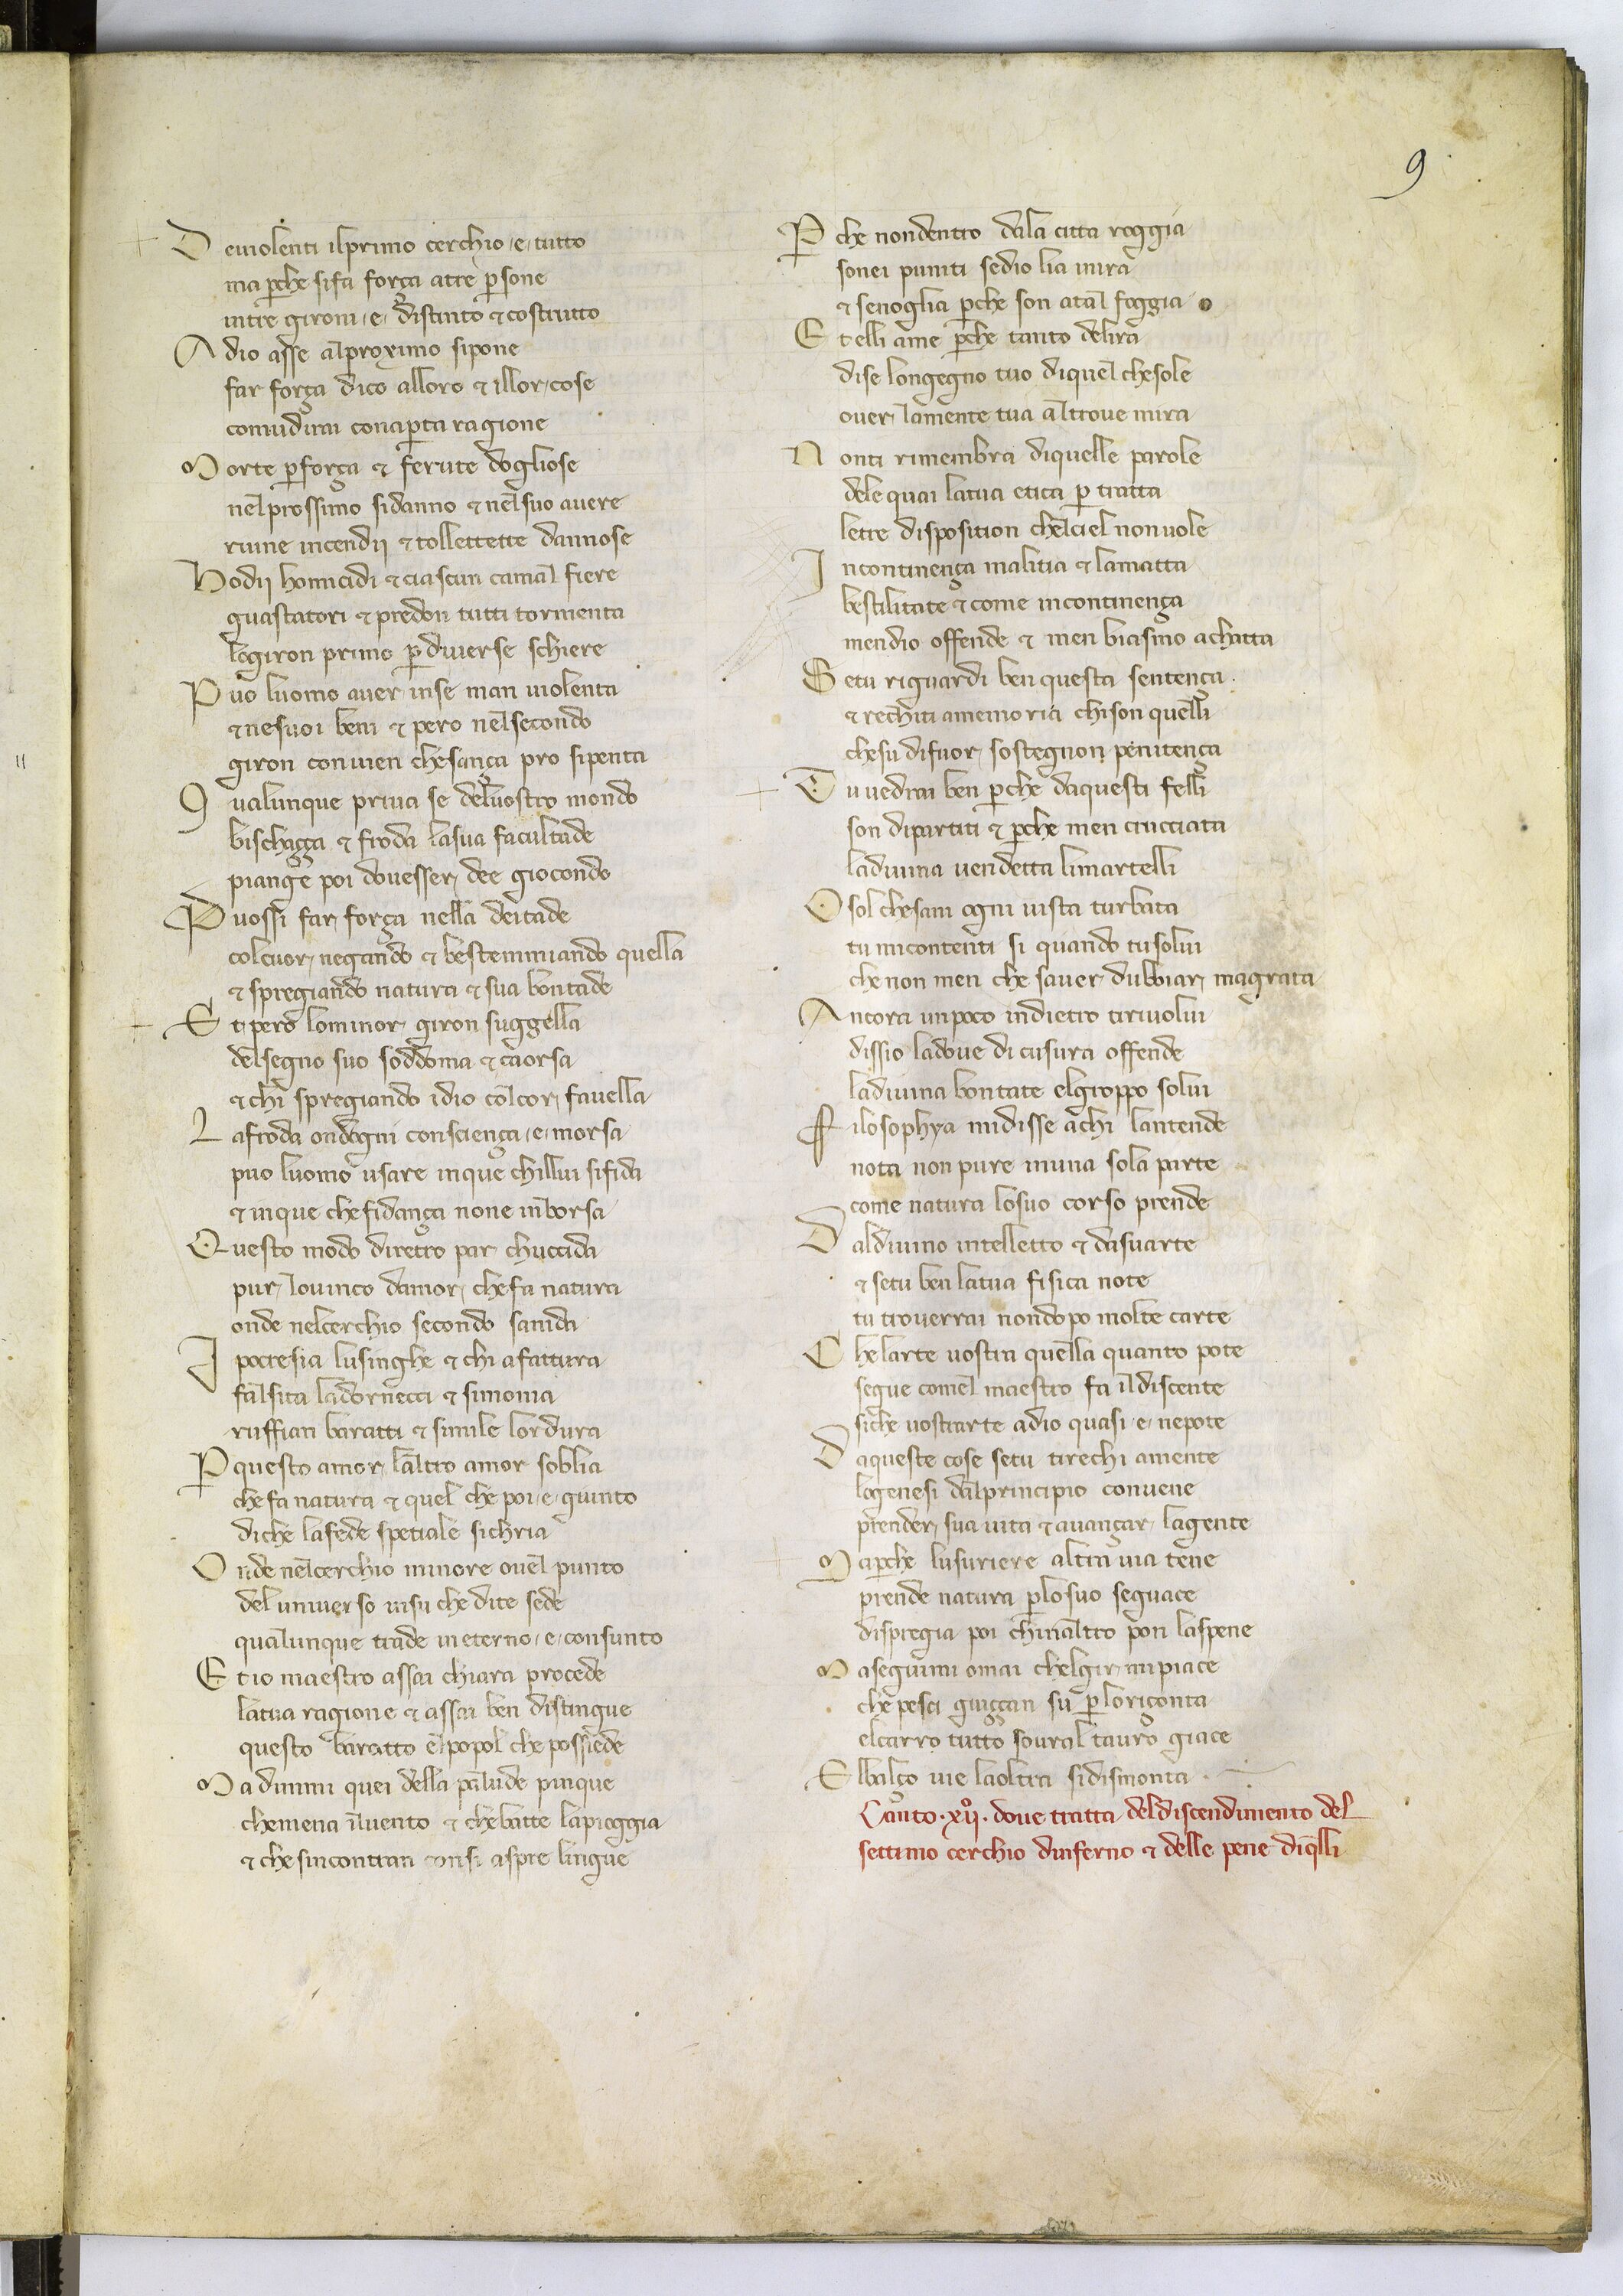 9
Deuiolenti ilprimo cerchio e tutto
ma perche sifa força atre persone
intre gironi e distinto & costrutto
Adio asse alproximo sipone
far força dico alloro & illor cose
comudirai conaperta ragione
Morte perforça & ferute dogliose
nelprossimo sidanno & nelsuo auere
ruine incendij & tollettette dannose
Hodij homicidi & ciascun camal fiere
guastatori & predon tutti tormenta
logiron primo per diuerse schiere
Puo luomo auer inse man uiolenta
& nesuoi beni & pero nelsecondo
giron conuien chesança pro sipenta
Qualunque priua se deluostro mondo
bischaçça & froda lasua facultade
piange poi douesser dee giocondo
Puossi far força nella deitade
colcuor negando & bestemmiando quella
& spregiando natura & sua bontade
Et pero lominor giron suggella
delsegno suo soddoma & caorsa
& chi spregiando idio colcor fauella
Lafroda ondogni consciença e morsa
puo luomo usare inque chillui sifida
& inque chefidança none inborsa
Questo modo diretro par chuccida
pur louinco damor chefa natura
onde nelcerchio secondo sanida
Ipocresia lusinghe & chi afattura
falsita ladornecci & simonia
ruffian baratti & simile lordura
Per questo amor laltro amor soblia
chefa natura & quel che poi e giunto
diche lafede spetiale sichria
Onde nelcerchio minore ouel punto
deluniuerso insu che dite sede
qualunque trade in eterno e consunto
Et io maestro assai chiara procede
latua ragione & assai ben distingue
questo baratto elpopol che possiede
Ma dimmi quei della palude pingue
chemena iluento & chebatte lapioggia
& che sincontran consi aspre lingue
Perche nondentro dala citta roggia
sonei puniti sedio lia inira
& senoglia perche son atal foggia
Et elli ame perche tanto delira
dise longegno tuo diquel chesole
ouer lamente tua altroue mira
Nonti rimembra diquelle parole
dele quai latua etica per tratta
letre disposition chelciel nonuole
Incontinença malitia & lamatta
bestilitate & come incontinença
mendio offende & men biasimo achatta
Setu riguardi ben questa sentença
& rechiti amemoria chison quelli
chesu difuor sostegnon penitença
Tu uedrai ben perche daquesti felli
son dipartiti & perche men crucciata
ladiuina uendetta limartelli
O sol chesani ogni uista turbata
tu micontenti si quando tusolui
che non men che sauer dubbiar magrata
Ancora unpoco indietro tiriuolui
dissio ladoue di cusura offende
ladiuina bontate elgroppo solui
Filosophya midisse achi lantende
nota non pure inuna sola parte
come natura losuo corso prende
Daldiuino intelletto & dasuarte
& setu ben latua fisica note
tu trouerrai nondopo molte carte
Chelarte uostra quella quanto pote
segue comel maestro fa ildiscente
siche uostrarte adio quasi e nepote
Daqueste cose setu tirechi amente
logenesi dalprincipio conuene
prender sua uita & auançar lagente
Maperche lusuriere altra uia tene
prende natura perlosuo seguace
dispregia poi chinaltro pon laspene
Maseguimi omai chelgir mipiace
che pesci guiççan su perloriçonta
elcarro tutto soural tauro giace
Elbalço uie laoltra sidismonta
Canto .xij. doue tratta deldiscendimento del
settimo cerchio dinferno & delle pene diquelli